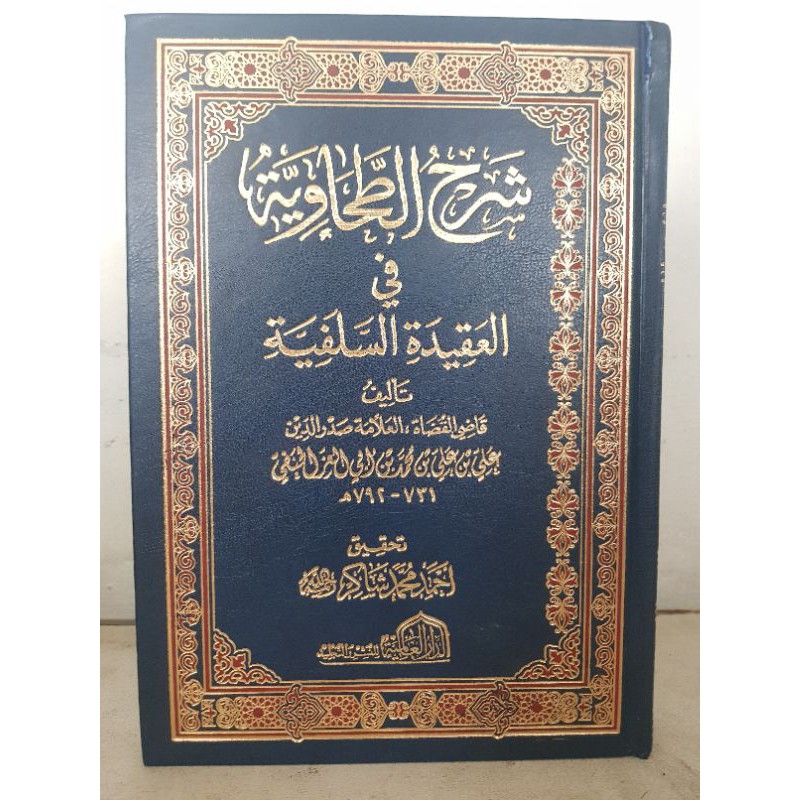 شرح الطحاوية
في
العقيدة السلفية
تأليف
قاضي القضاة العلامة صدر الدين
علي بن علي بن محمد بن أبي العز الحنفي
٧٣١ - ٧٩٢ هـ
تحقيق
أحمد محمد شاكر رحمه الله
الدار العالمية للنشر والتجليد